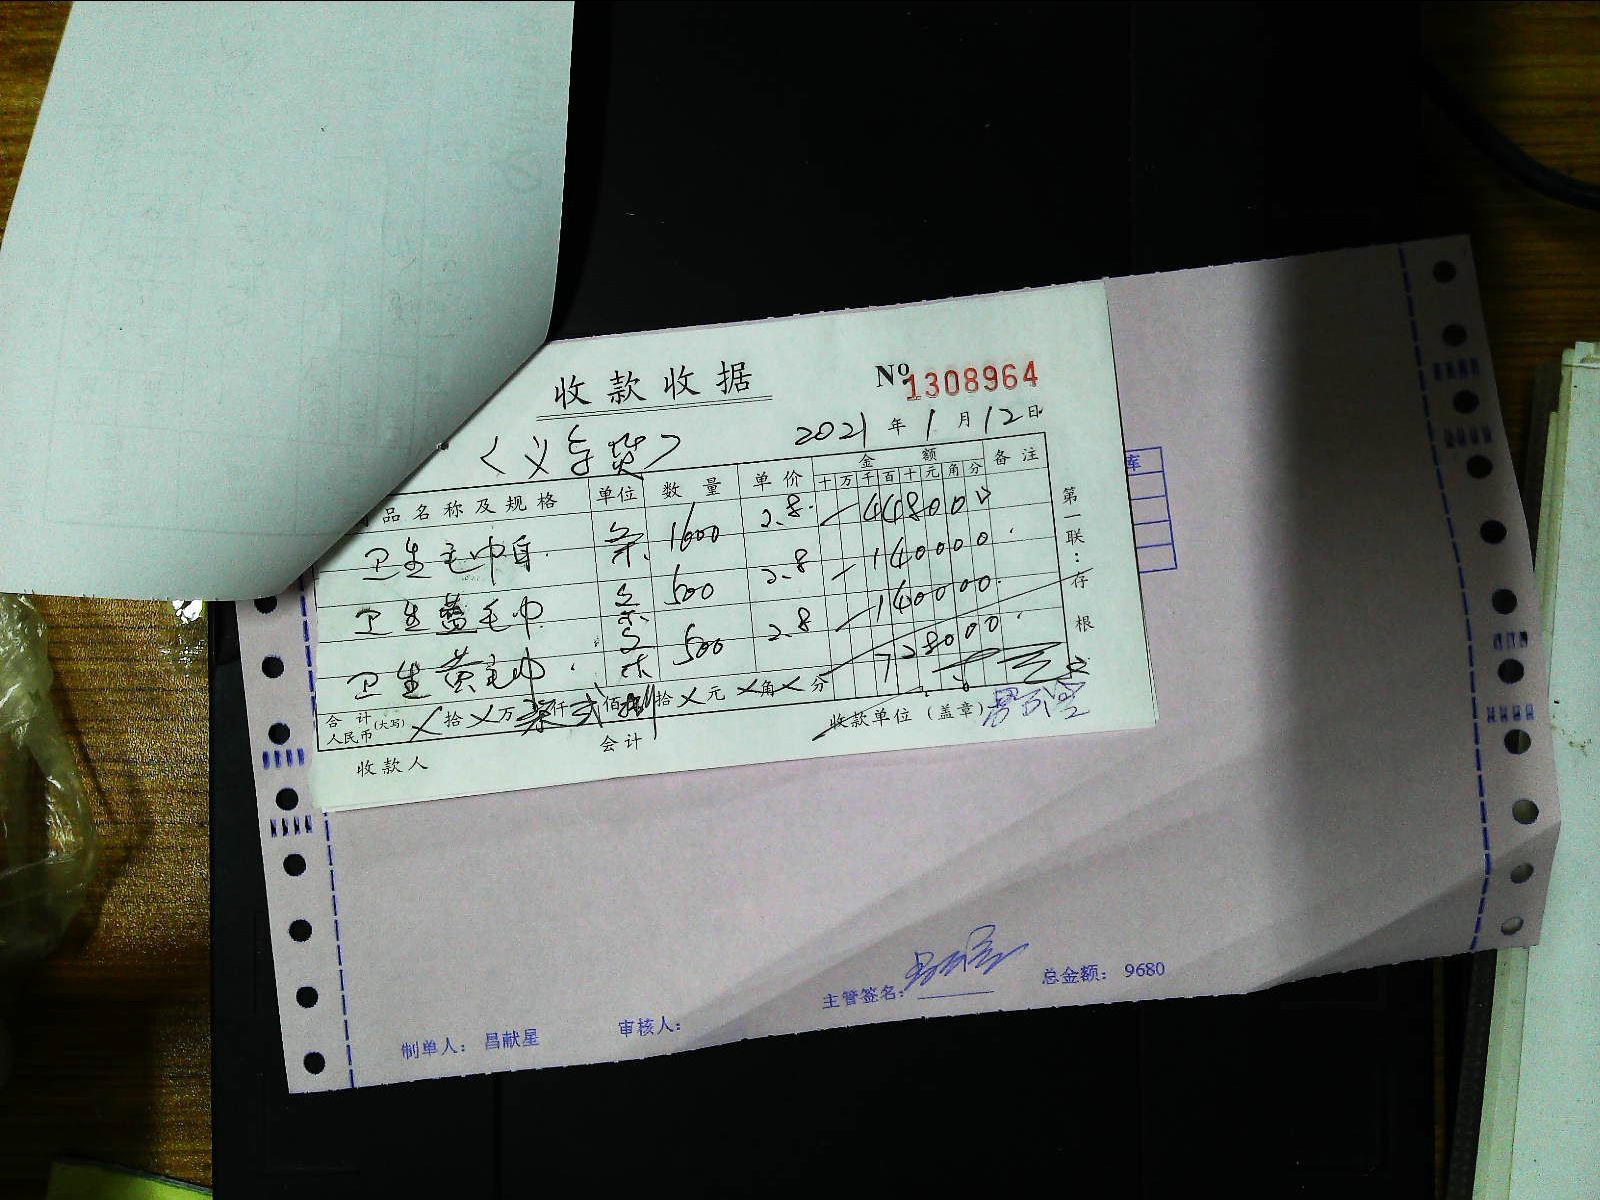 收款收据
No 1308964
2021年1月12日
品名称及规格 单位 数量 单价 金额 备注
十万千百十元角分
卫生毛巾 条 1600 2.8 448000
卫生蓝毛巾 条 500 2.8 140000
卫生黄毛巾 条 500 2.8 140000
728000
合计人民币(大写) 乂拾乂万柒仟贰佰捌拾乂元乂角乂分
收款人 会计 收款单位(盖章)
第一联:存根
库
制单人: 昌献星 审核人: 主管签名: 总金额: 9680